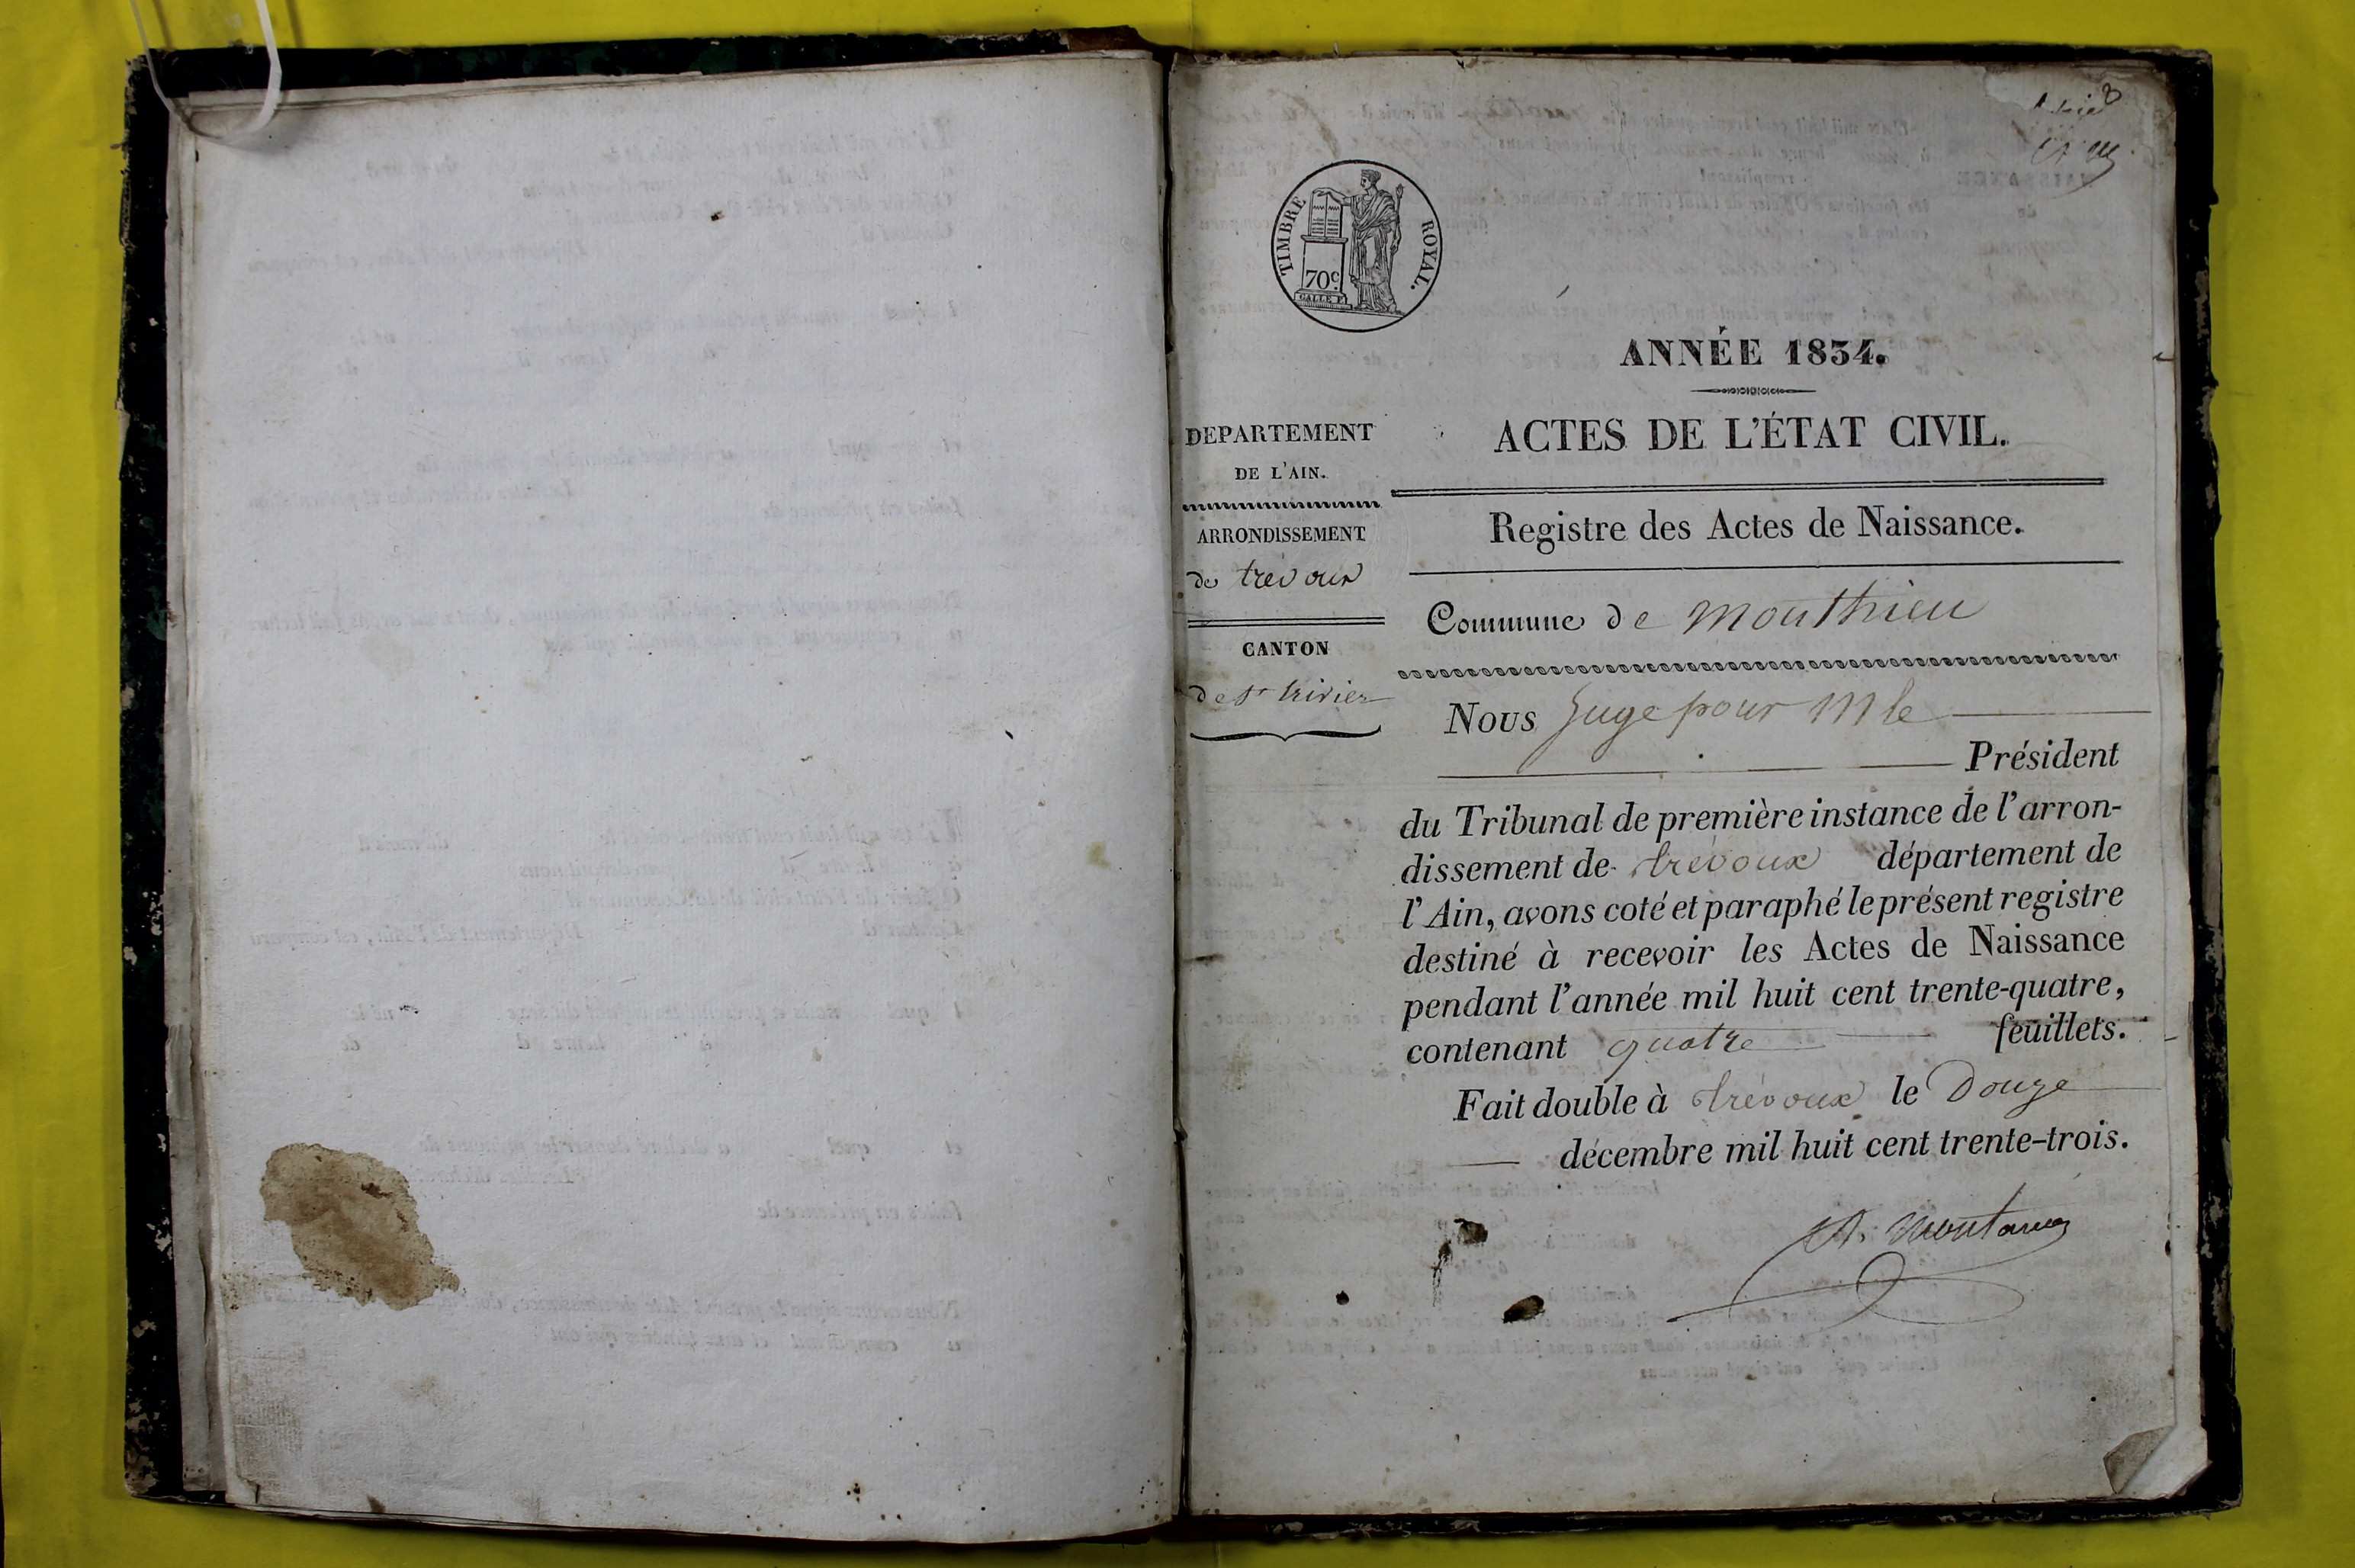 8
TIMBRE ROYAL.
70c.
ANNÉE 1834.
DEPARTEMENT
DE L'AIN.
ARRONDISSEMENT
de trevoux
CANTON
de St trivier
ACTES DE L'ÉTAT CIVIL.
Registre des Actes de Naissance.
Commune de Monthieu
Nous Juge pour M le
Président
du Tribunal de première instance de l'arron-
dissement de trévoux département de
l'Ain, avons coté et paraphé le présent registre
destiné à recevoir les Actes de Naissance
pendant l'année mil huit cent trente-quatre,
contenant quatre feuillets.
Fait double à trévoux le Douze
décembre mil huit cent trente-trois.